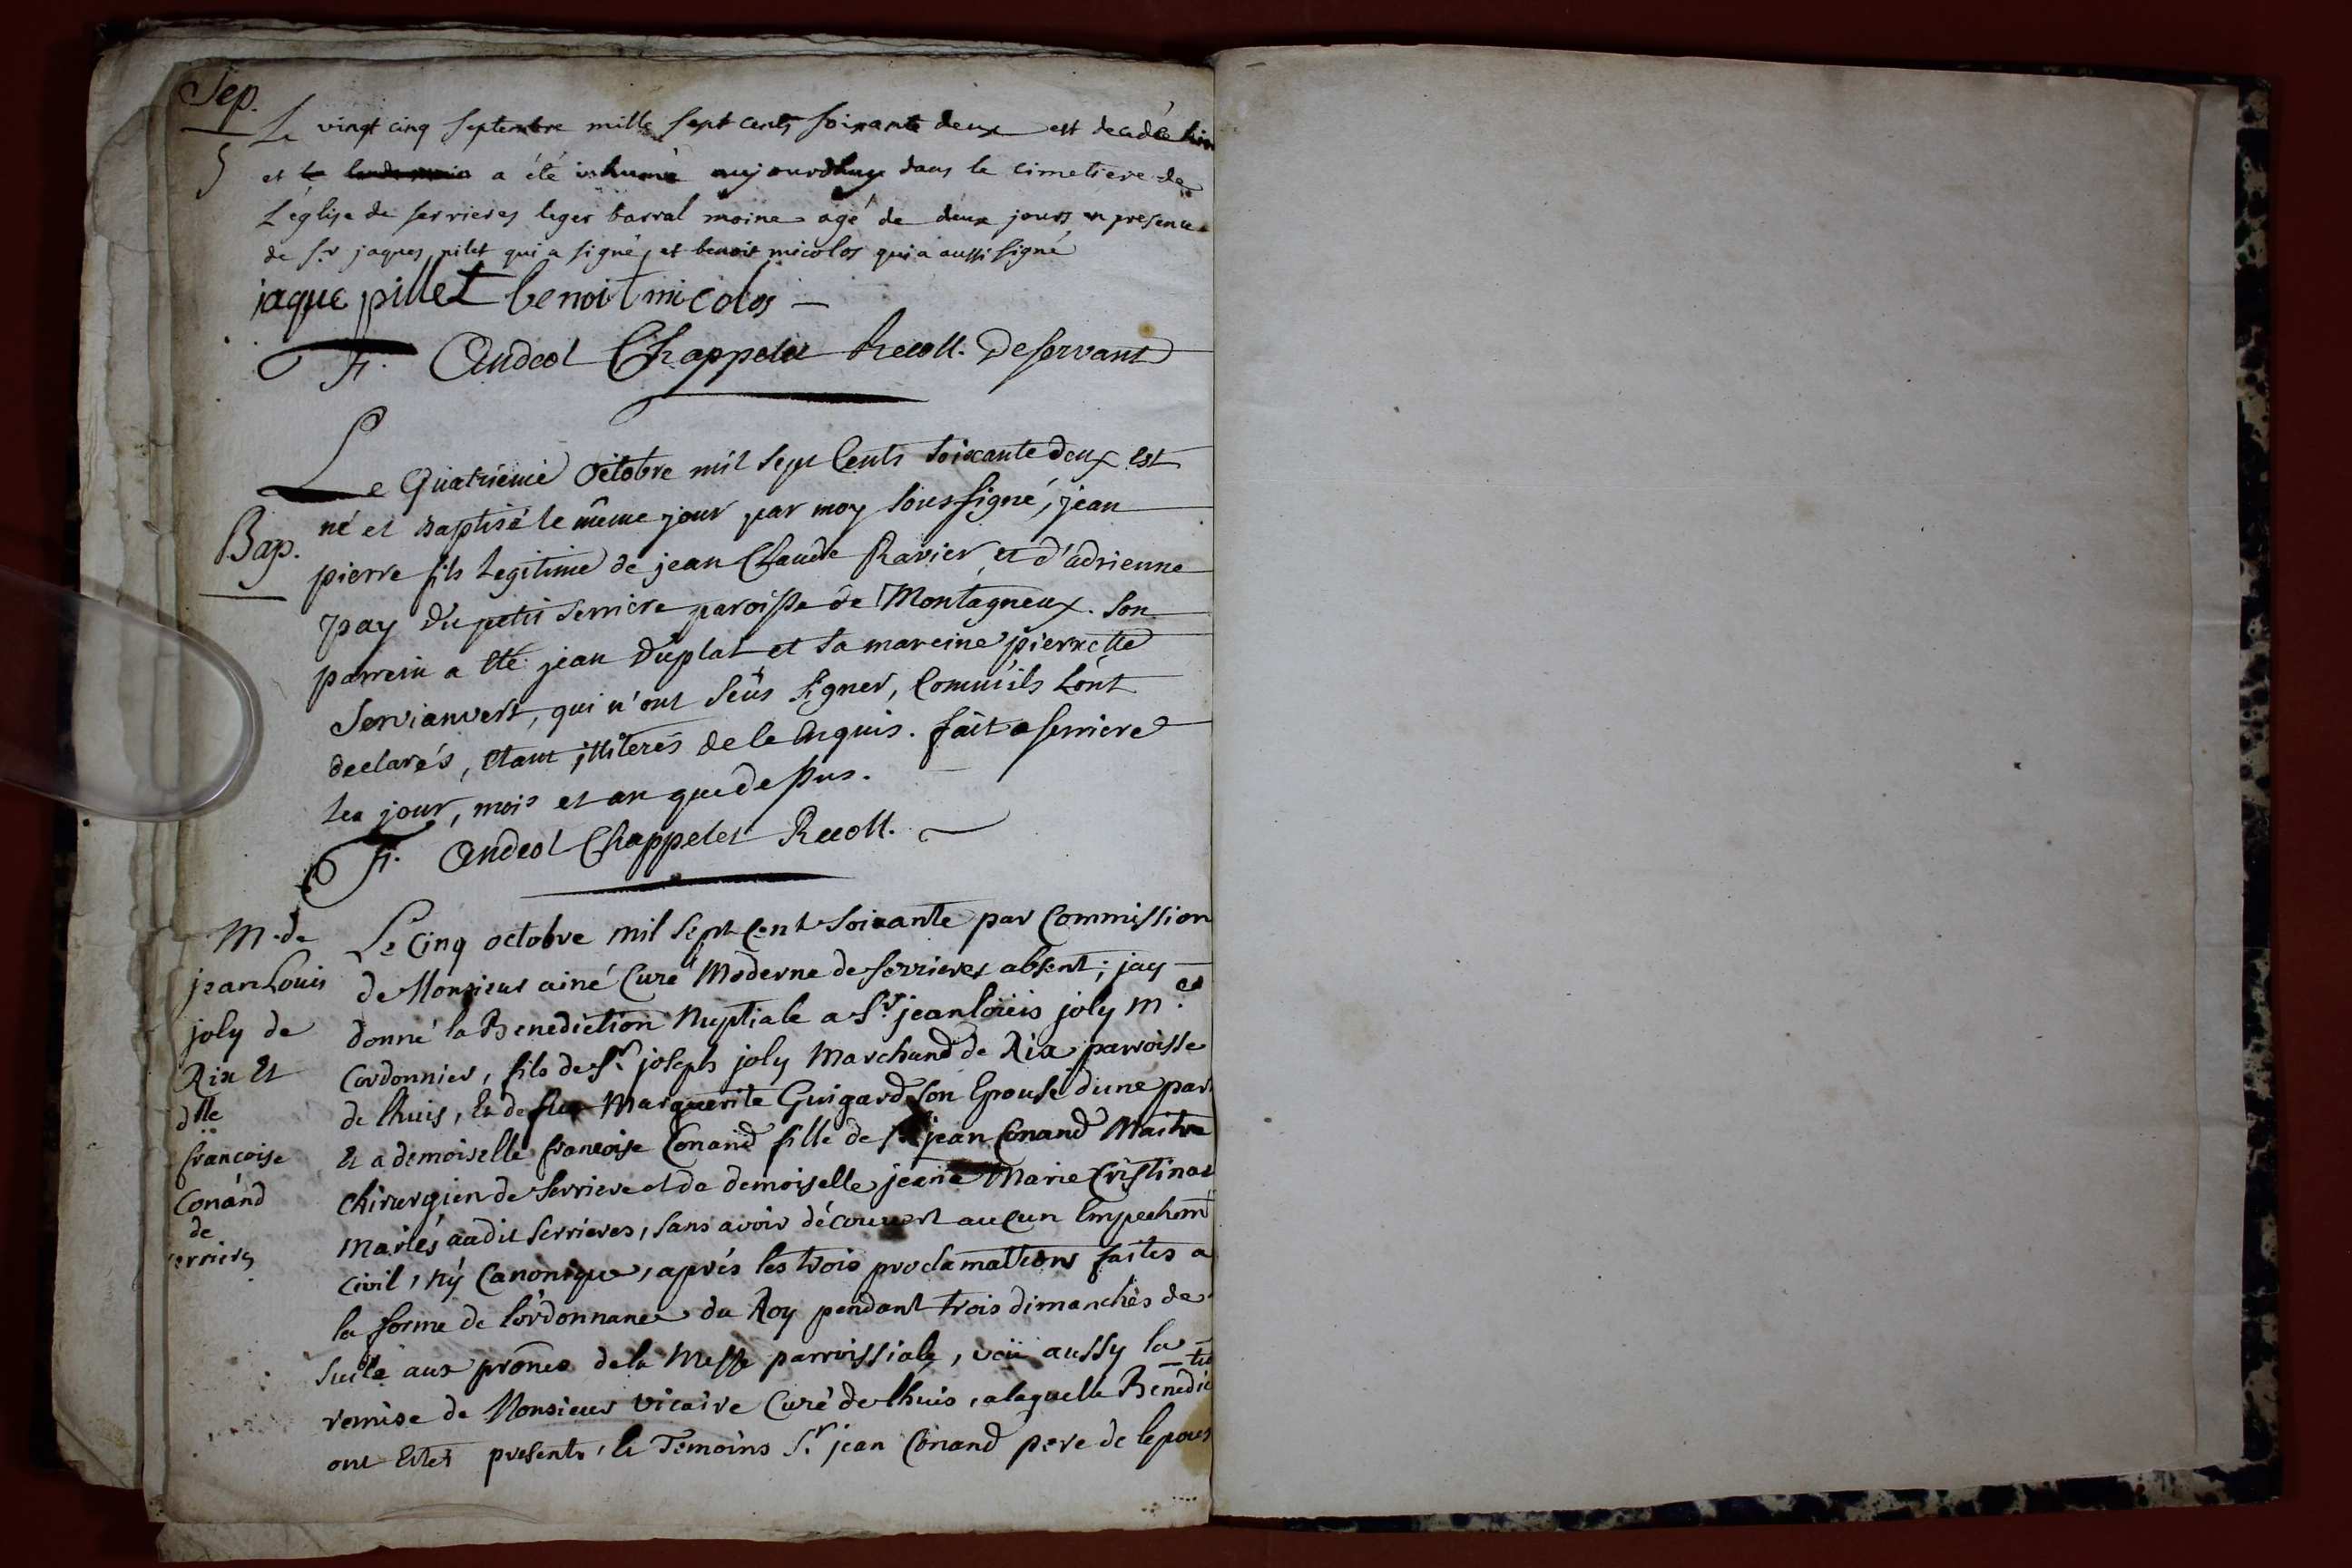 Sep.
5
Le vingt cinq septembre mille sept cents soixante deux est decedé hier
et le lendemain a été inhumé aujourdhuy dans le cimetiere de
L'église de serrieres leger barral moine agé de deux jours en presence
de sr jaques pilet qui a signé, et benoit micolos qui a aussi signé
jaque pillet benoit micolos
F. Andeol Chappelet Recoll. Deservant
Bap.
Le Quatriéme Octobre mil Sept Cents Soixante deux est
né et Baptisé le même jour par moy soussigné, jean
pierre fils Legitime de jean Claude Ravier, et d'adrienne
pay du petit Serriere paroisse de Montagneux. Son
parrein a été jean Duplat et sa mareine pierrette
Servianvert, qui n'ont seus signer, Comm'ils l'ont
declarés, étant illiterés de le enquis. fait a serriere
les jour, mois et an que dessus.
F. Andeol Chappelet Recoll.
M. de
jean Louis
joly de
Rix Et
dlle
francoise
Conand
de
serrieres
Le Cinq octobre mil sept Cent Soixante par Commission
de Monsieur ainé Curé Moderne de serrieres absent; jay
donné la Benediction Nuptiale a Sr. jean loüis joly m.e
Cordonnier, fils de Sr. joseph joly Marchand de Rix parroisse
de lhuis, Et de feue Marguerite Guigard son Epouse dune part
Et a demoiselle francoise Conand fille de sr jean Conand Maitre
chirurgien de Serriere et de demoiselle jeane Marie Cristinat
Mariés audit Serrieres, sans avoir découvert aucun Empechemt
civil, ny Canonique, aprés les trois proclamations faites a
la forme de l'ordonnance du Roy pendant trois dimanches de
suite aux prônes de la Messe parroissiale, veü aussy la
remise de Monsieur vicaire Curé de lhuis, a laquelle Bénédiction
ont Etes presents, Et Temoins Sr. jean Conand pere de lepouse